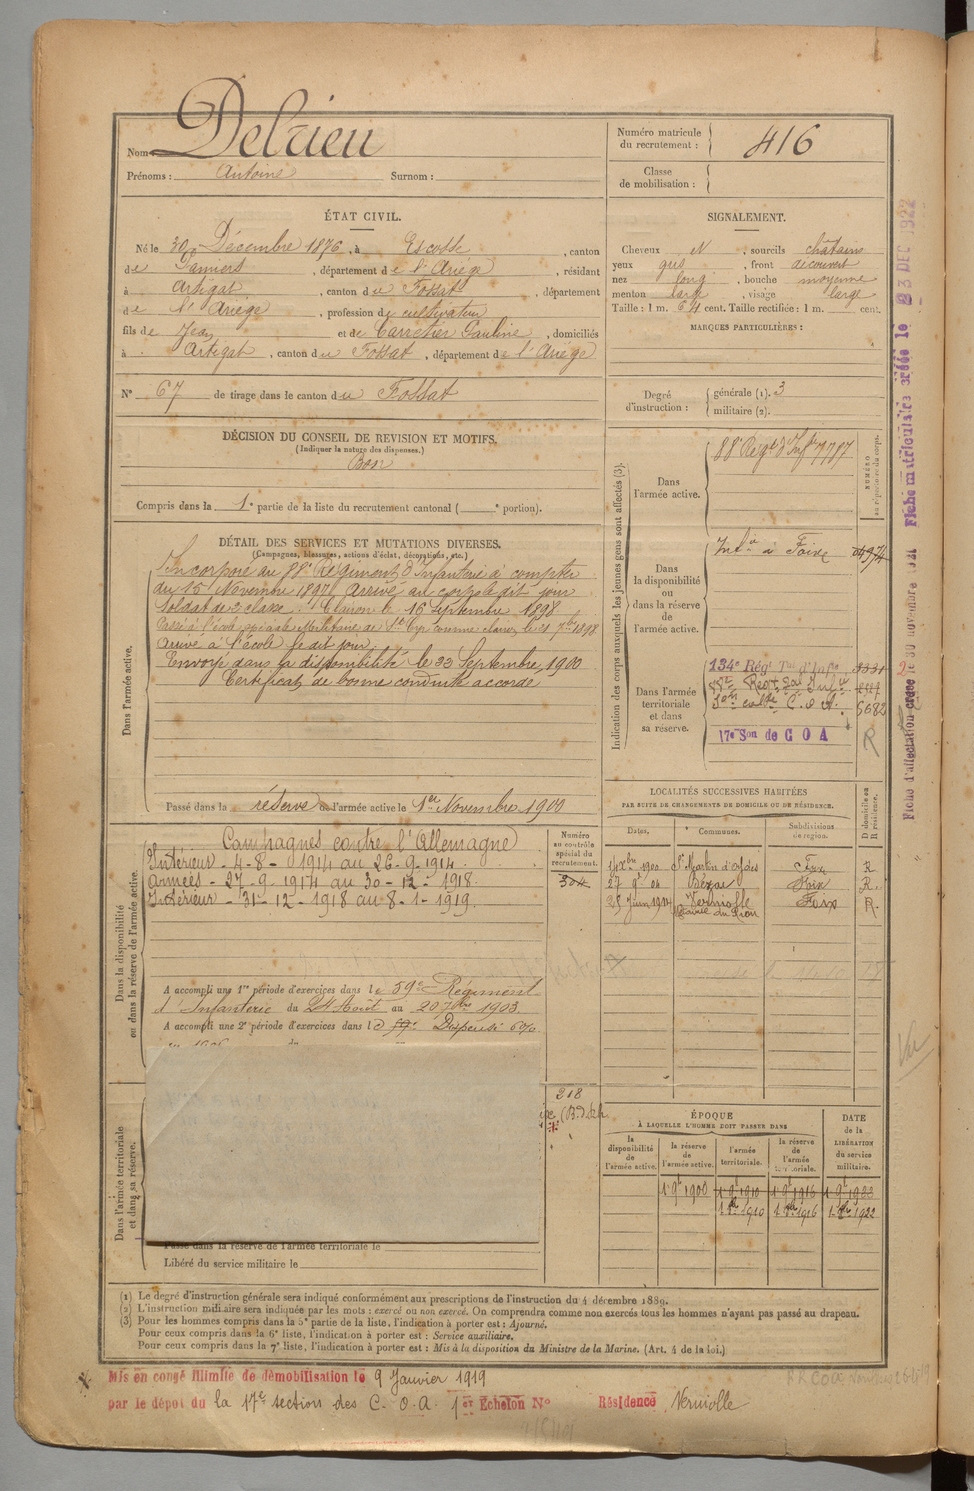 Nom Delrieu
Prénoms : Antoine Surnom :
Numéro matricule du recrutement : 416
Classe de mobilisation :
ÉTAT CIVIL.
Né le 30 Décembre 1876, à Escosse, canton
de Pamiers, département de l'Ariège, résidant
à Artigat, canton du Fossat, département
de l'Ariège, profession de cultivateur
fils de Jean et de Carretier Pauline, domiciliés
à Artigat, canton du Fossat, département de l'Ariège
N° 67 de tirage dans le canton du Fossat
SIGNALEMENT.
Cheveux N, sourcils châtain
yeux gris, front découvert
nez long, bouche moyenne
menton large, visage large
Taille : 1 m. 64 cent. Taille rectifiée : 1 m. cent.
MARQUES PARTICULIÈRES :
Degré d'instruction : générale (1). 3
militaire (2).
DÉCISION DU CONSEIL DE REVISION ET MOTIFS.
(Indiquer la nature des dispenses.)
Bon
Compris dans la 1e partie de la liste du recrutement cantonal ( e portion).
DÉTAIL DES SERVICES ET MUTATIONS DIVERSES.
(Campagnes, blessures, actions d'éclat, décorations, etc.)
Dans l'armée active.
Incorporé au 88e Régiment d'Infanterie à compter
du 15 Novembre 1897. Arrivé au corps le dit jour
Soldat de 2e classe. Clairon le 16 Septembre 1898.
Passé à l'école spéciale Militaire de St Cyr comme clairon le 21 7bre 1898
Arrivé à l'école le dit jour.
Envoyé dans la disponibilité le 22 Septembre 1900
Certificat de bonne conduite accordé
Passé dans la réserve de l'armée active le 1er Novembre 1900
Indication des corps auxquels les jeunes gens sont affectés (3).
NUMÉRO au répertoire du corps.
Dans l'armée active.
88e Régt d'Infie 7787
Dans la disponibilité ou dans la réserve de l'armée active.
Infie à Foix 04974
Dans l'armée territoriale et dans sa réserve.
134e Régt Tal d'Infie
Son C.O.A. 5682
17e Son de COA
R
Fiche matriculaire créée le 23 DEC 1922
LOCALITÉS SUCCESSIVES HABITÉES
PAR SUITE DE CHANGEMENTS DE DOMICILE OU DE RÉSIDENCE.
Dates. Communes. Subdivisions de région. D domicile ou R résidence.
1900 St Martin d'Oydes Foix R
27 9t 04 Bézac Foix R.
25 Juin 1914 Verniolle Foix R.
Dans la disponibilité ou dans la réserve de l'armée active.
Numéro au contrôle spécial du recrutement.
304
Campagnes contre l'Allemagne
Intérieur - 4-8-1914 au 26-9-1914.
Armées - 27-9-1914 au 30-12-1918.
Intérieur - 31-12-1918 au 8-1-1919.
A accompli une 1re période d'exercices dans le 59e Régiment
d'Infanterie du 24 Août au 20 7bre 1903.
A accompli une 2e période d'exercices dans le 59e Dispensé
Dans l'armée territoriale et dans sa réserve.
218
Passé dans la réserve de l'armée territoriale le
Libéré du service militaire le
ÉPOQUE
À LAQUELLE L'HOMME DOIT PASSER DANS
la disponibilité de l'armée active. la réserve de l'armée active. l'armée territoriale. la réserve de l'armée territoriale. DATE de la LIBÉRATION du service militaire.
1 9t 1900 1 9t 1910 1 9t 1916 1 9t 1922
1 8bre 1910 1 8bre 1916 1 8bre 1922
(1) Le degré d'instruction générale sera indiqué conformément aux prescriptions de l'instruction du 4 décembre 1889.
(2) L'instruction militaire sera indiquée par les mots : exercé ou non exercé. On comprendra comme non exercés tous les hommes n'ayant pas passé au drapeau.
(3) Pour les hommes compris dans la 5e partie de la liste, l'indication à porter est : Ajourné.
Pour ceux compris dans la 6e liste, l'indication à porter est : Service auxiliaire.
Pour ceux compris dans la 7e liste, l'indication à porter est : Mis à la disposition du Ministre de la Marine. (Art. 4 de la loi.)
Mis en congé illimité de démobilisation le 9 Janvier 1919
par le dépôt du la 17e section des C.O.A. 1er Echelon N° Résidence Verniolle